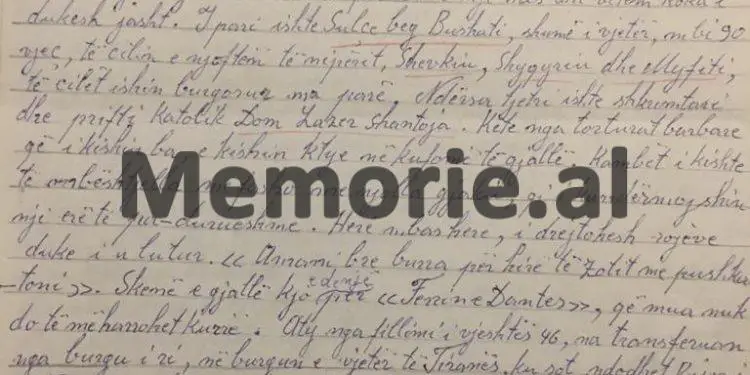 dukesh jasht. I pari ishte Sulce beg Bushati, shumë i vjetër, mbi 90
vjeç, të cilin e njoftëm të nipërit, Shevkiu, Shygyriu dhe Myfiti,
të cilët ishin burgosur ma parë. Ndërsa tjetri ishte shkrimtari
dhe prifti Katolik Dom Lazer Shantoja. Këtë nga torturat barbare
që i kishin ba, e kishin kthye në kufomë të gjallë. Kambët i kishte
të mbështjella
Memorie.al
një erë të pa-durueshme. Herë mbas here, i drejtohesh rojëve
duke i u lutur. << Amani bre burra për hirë të Zotit me pushka-
-toni >>. Skenë e gjallë kjo e denjë për << Ferrin e Dantes >>, që mua nuk
do të më harrohet kurrë. Aty nga fillimi i vjeshtës 46, na transferuan
nga burgu i ri, në burgun e vjetër të Tiranës, ku sot ndodhet